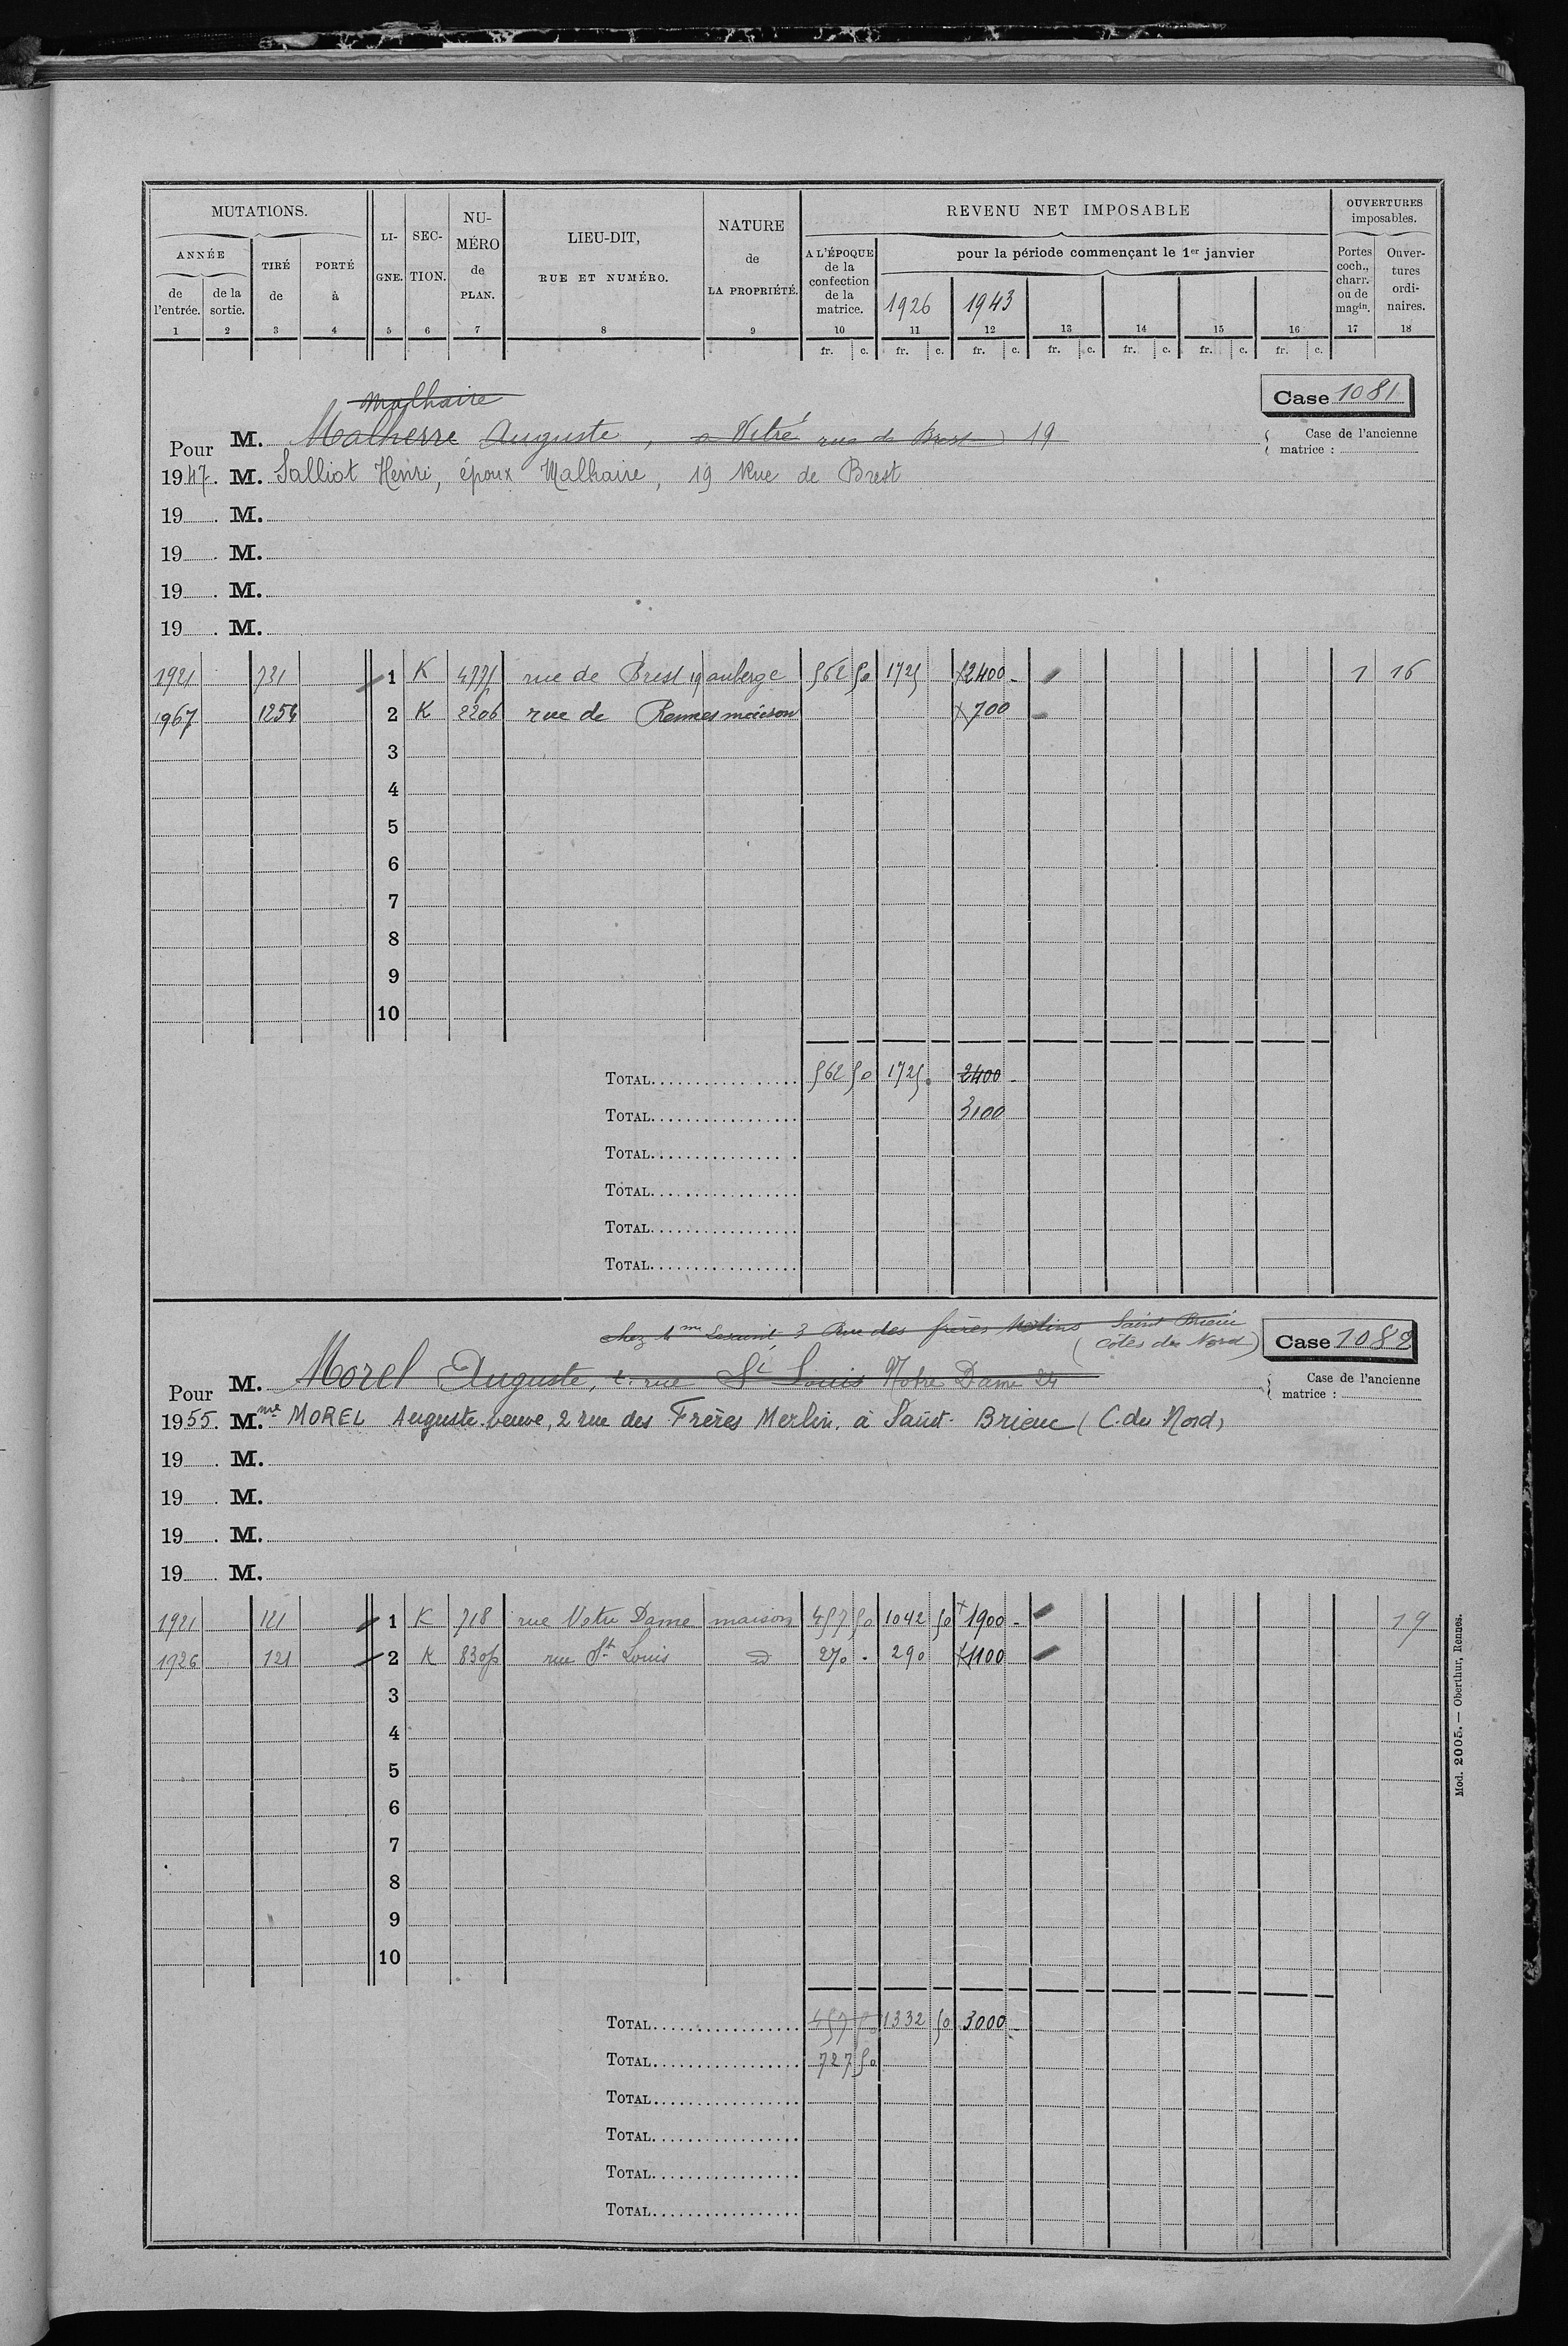 MUTATIONS. LI- SEC- NU- LIEU-DIT, NATURE REVENU NET IMPOSABLE OUVERTURES
ANNÉE TIRÉ PORTÉ GNE. TION. MÉRO RUE ET NUMÉRO. de A L'ÉPOQUE pour la période commençant le 1er janvier imposables.
de l'entrée. de la sortie. de à de PLAN. LA PROPRIÉTÉ. de la confection de la matrice. 1926 1943 Portes coch., charr. ou de magin. Ouver- tures ordi- naires.
1 2 3 4 5 6 7 8 9 10 11 12 13 14 15 16 17 18
fr. c. fr. c. fr. c. fr. c. fr. c. fr. c. fr. c.
Malhaire
Case 1081
Pour M. Malherre Auguste, a Vitré rue de Brest 19
Case de l'ancienne matrice :
1947. M. Salliot Henri, époux Malhaire, 19 Rue de Brest
19 . M.
19 . M.
19 . M.
19 . M.
1921 731 1 K 477p rue de Brest 19 auberge 562 50 1725 x2400 - 1 16
1967 1254 2 K 2206 rue de Rennes maison x700
3
4
5
6
7
8
9
10
TOTAL 562 50 1725. 2400 -
TOTAL 3100
TOTAL
TOTAL
TOTAL
TOTAL
chez Mme 3 Rue des frères Saint Brieuc
(Côtes du Nord)
Case 1082
Pour M. Morel Auguste, rue St Louis Notre Dame 24
Case de l'ancienne matrice :
1955. Mme MOREL Auguste veuve, 2 rue des Frères Merlin, à Saint-Brieuc (C. du Nord)
19 . M.
19 . M.
19 . M.
19 . M.
1921 121 1 K 718 rue Notre Dame maison 457 50 1042 50 x1900 - 19
1926 121 2 K 830p rue St Louis d 270 . 290 x1100
3
4
5
6
7
8
9
10
TOTAL 457 50 1332 50 3000 -
TOTAL 727 50
TOTAL
TOTAL
TOTAL
TOTAL
Mod. 2005. — Oberthur, Rennes.